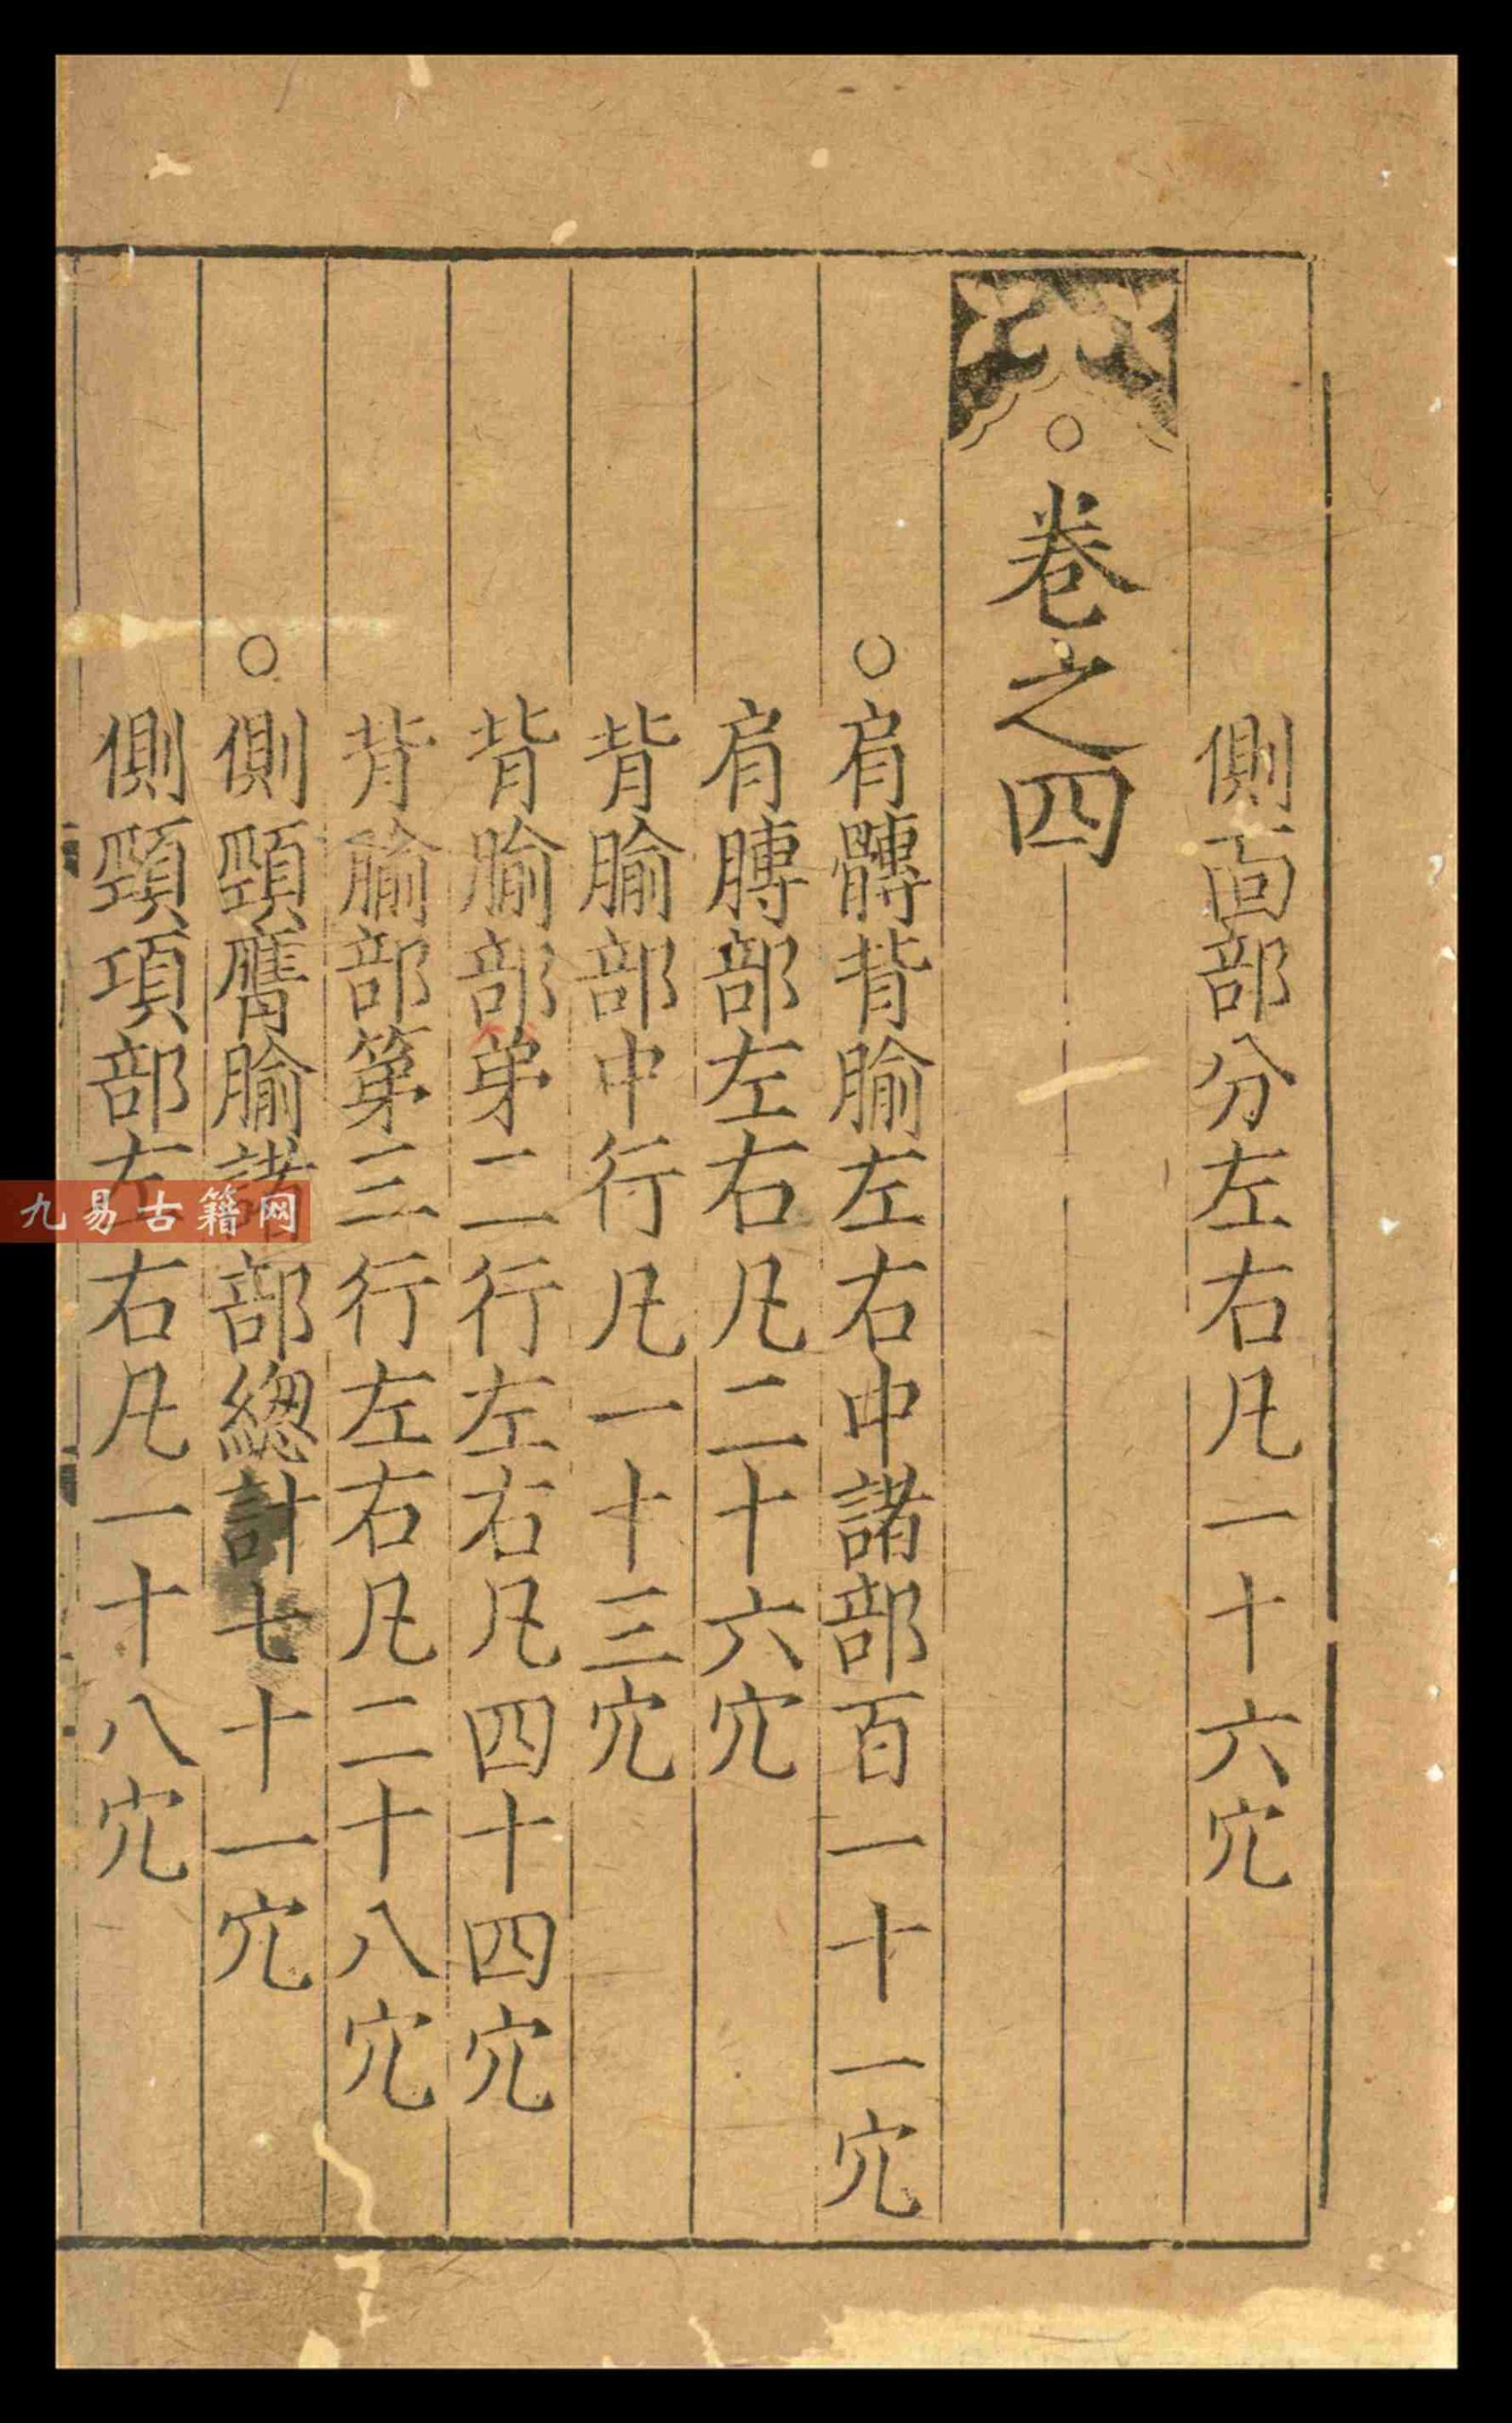 側面部分左右凡一十六穴
○卷之四
○肩髆背腧左右中諸部百一十一穴
肩膊部左右凡二十六穴
背腧部中行凡一十三穴
背腧部第二行左右凡四十四穴
背腧部第三行左右凡二十八穴
○側頸膺腧諸部總計七十一穴
側頸項部左右凡一十八穴
九易古籍网